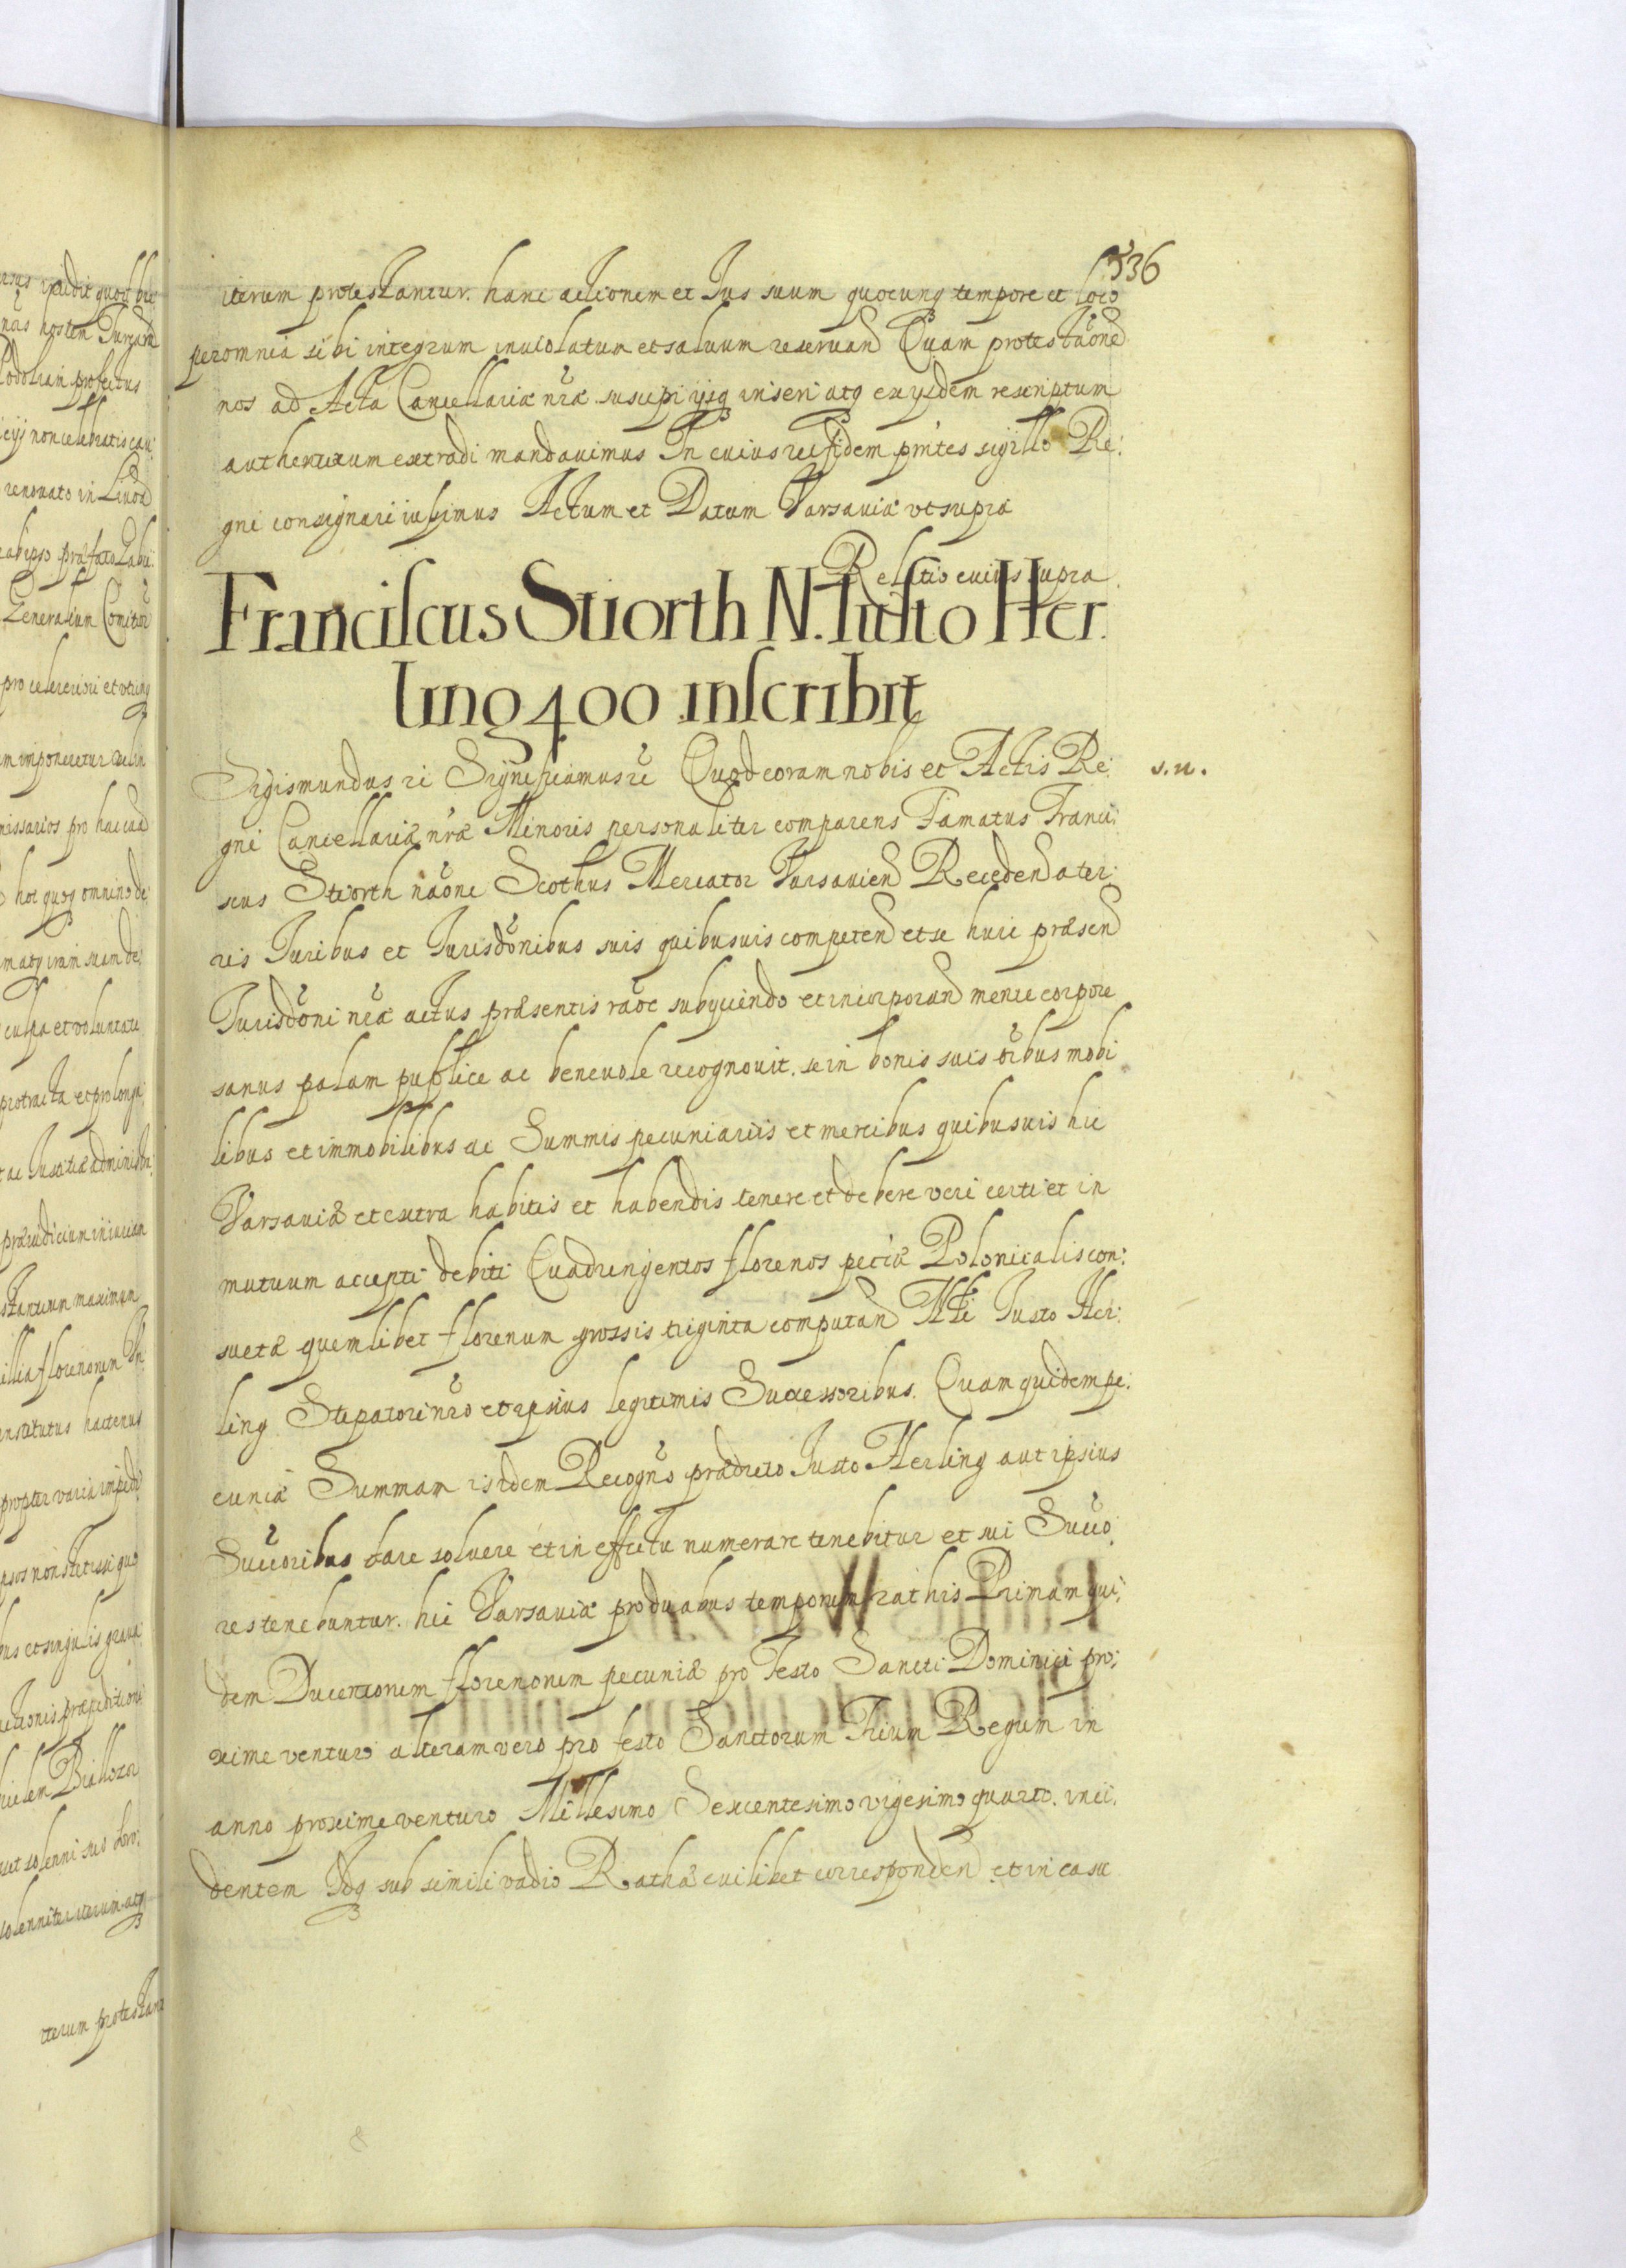 536
iterum protestantur. hanc actionem et Jus suum quocunq tempore et loco
per omnia sibi integrum inuiolatum et saluum reseruand Quam protestaone
nos ad Acta Cancellariæ nræ suscipi ijsq inseri atq ex ijsdem rescriptum
authenticum extradi mandauimus In cuius rei fidem pntes sigillo Re:
gni consignari iussimus Actum et Datum Varsauiæ vt supra
Relatio cuius supra
Franciscus Stiorth N. Iusto Her
ling 400 inscribit
Sigismundus ri Significamus re Quod coram nobis et Actis Re: s. n.
gni Cancellariæ nræ Minoris personaliter comparens Famatus Franci:
scus Stiorth naone Scothus Mercator Varsauien Recedend a ter:
ris Juribus et Jurisdonibus suis quibusuis competend et se huic præsend
Jurisdoni nræ actus præsentis raoe subyciendo et incorporand mente corpore
sanus palam publice ac beneuole recognouit. se in bonis suis oibus mobi
libus et immobilibus ac Summis pecuniariis et mercibus quibusuis hic
Varsauiæ et extra habitis et habendis tenere et debere veri certi et in
mutuum accepti debiti Quadringentos florenos peciæ Polonicalis con:
suetæ quemlibet florenum grossis triginta computand Justo Her:
ling Stipatori nro et ipsius legitimis Successoribus. Quam quidem pe:
cuniæ Summam is idem Recogns prædicto Justo Herling aut ipsius
Succoribus dare soluere et in effectu numerare tenebitur et sui Succo:
res tenebuntur. hic Varsauiæ pro duabus temporum rathis Primam qui:
dem Ducentorum florenorum pecuniæ pro Festo Sancti Dominici pro:
xime venturo alteram vero pro festo Sanctorum Trium Regum in
anno proxime venturo Millesimo Sexcentesimo vigesimo quarto. inci:
dentem Idq sub simili vadio Rathæ cuilibet correspondend et in casu